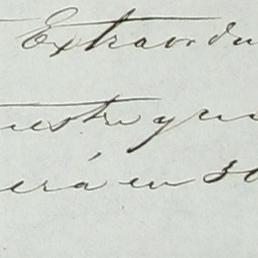 Extraordn
uestre que
erá en 30